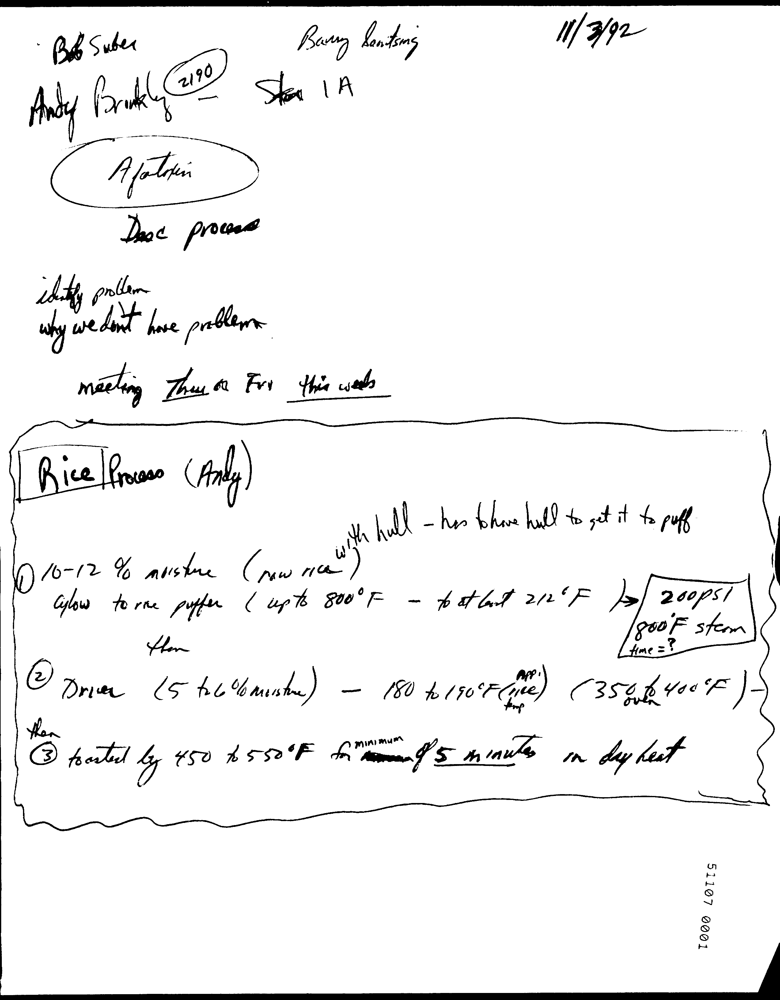 Bob Suber
Barry
11/3/92
Andy Brinkly 2190 - 1A
Afatoxin
Desc process
identify problem
why we don't have problem
meeting Thur or Fri this week
Rice Process (Andy)
with hull - has to have hull to get it to puff
① 10-12 % moisture (raw rice)
to rice puffer (up to 800°F - to at least 212°F) → 200psi
800°F steam
time = ?
then
② Drier (5 to 6% moisture) - 180 to 190°F (rice) (350 to 400°F) -
App.
temp
oven
then
③ toasted by 450 to 550°F for minimum of 5 minutes in dry heat
51107 0001